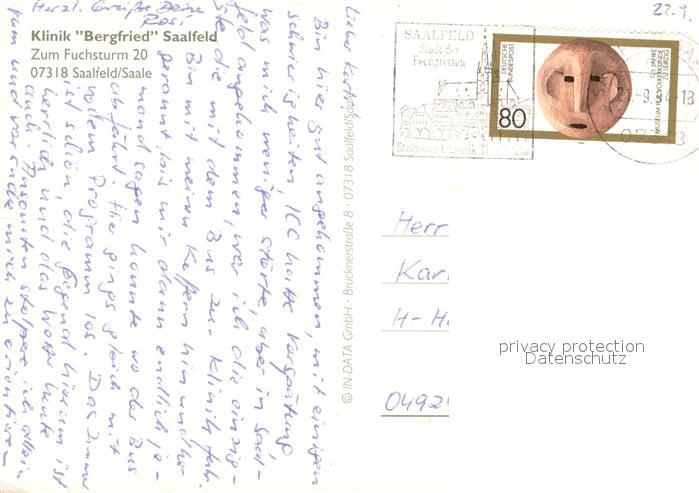 Klinik "Bergfried" Saalfeld
Zum Fuchsturm 20
07318 Saalfeld/Saale
Lieber Karl,
Bin hier gut angekommen, mit einigen
Schwierigkeiten, ICE hatte Verspätung
was mich weniger störte, aber in Saal-
feld angekommen, war ich die einzig-
ste die mit dem Bus zur Klinik fuhr.
Bin mit meinen Koffern hin und her
gerannt, bis mir dann endlich je-
mand sagen konnte wo der Bus
abfährt. Hier gings gleich mit
vollem Programm los. Das Zimmer
ist schön, die Gegend hierum ist
herrlich und das Wetter heute
auch. Ansonsten stolpere ich allein
rum und versuche mich zu orientieren
Herzl. Grüße Deine
Rosi
© IN-DATA GmbH · Brucknerstraße 8 · 07318 Saalfeld/Saale
22.9.
SAALFELD
Stadt der
Feengrotten
Steinerne Chronik
DEUTSCHE
BUNDESPOST
80
125 JAHRE
MUSEUM FÜR VÖLKERKUNDE
ZU LEIPZIG
Herr
Karl
H-H
0492
privacy protection
Datenschutz